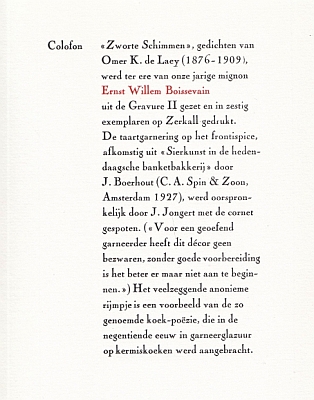 Colofon «Zworte Schimmen», gedichten van
Omer K. de Laey (1876-1909),
werd ter ere van onze jarige mignon
Ernst Willem Boissevain
uit de Gravure II gezet en in zestig
exemplaren op Zerkall gedrukt.
De taartgarnering op het frontispice,
afkomstig uit «Sierkunst in de heden-
daagsche banketbakkerij» door
J. Boerhout (C. A. Spin & Zoon,
Amsterdam 1927), werd oorspron-
kelijk door J. Jongert met de cornet
gespoten. («Voor een geoefend
garneerder heeft dit décor geen
bezwaren, zonder goede voorbereiding
is het beter er maar niet aan te begin-
nen.») Het veelzeggende anonieme
rijmpje is een voorbeeld van de zo
genoemde koek-poëzie, die in de
negentiende eeuw in garneerglazuur
op kermiskoeken werd aangebracht.